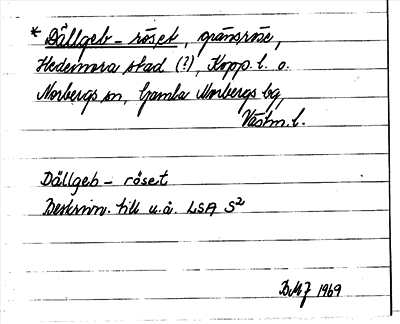 * Dållgeb – röset, gränsröse,
Hedemora stad (?), Kopp. l. o.
Norbergs sn, Gamla Norbergs bg,
Västm. l.
Dållgeb – röset
Beskrivn. till u.å. LSA S²
BMJ 1969